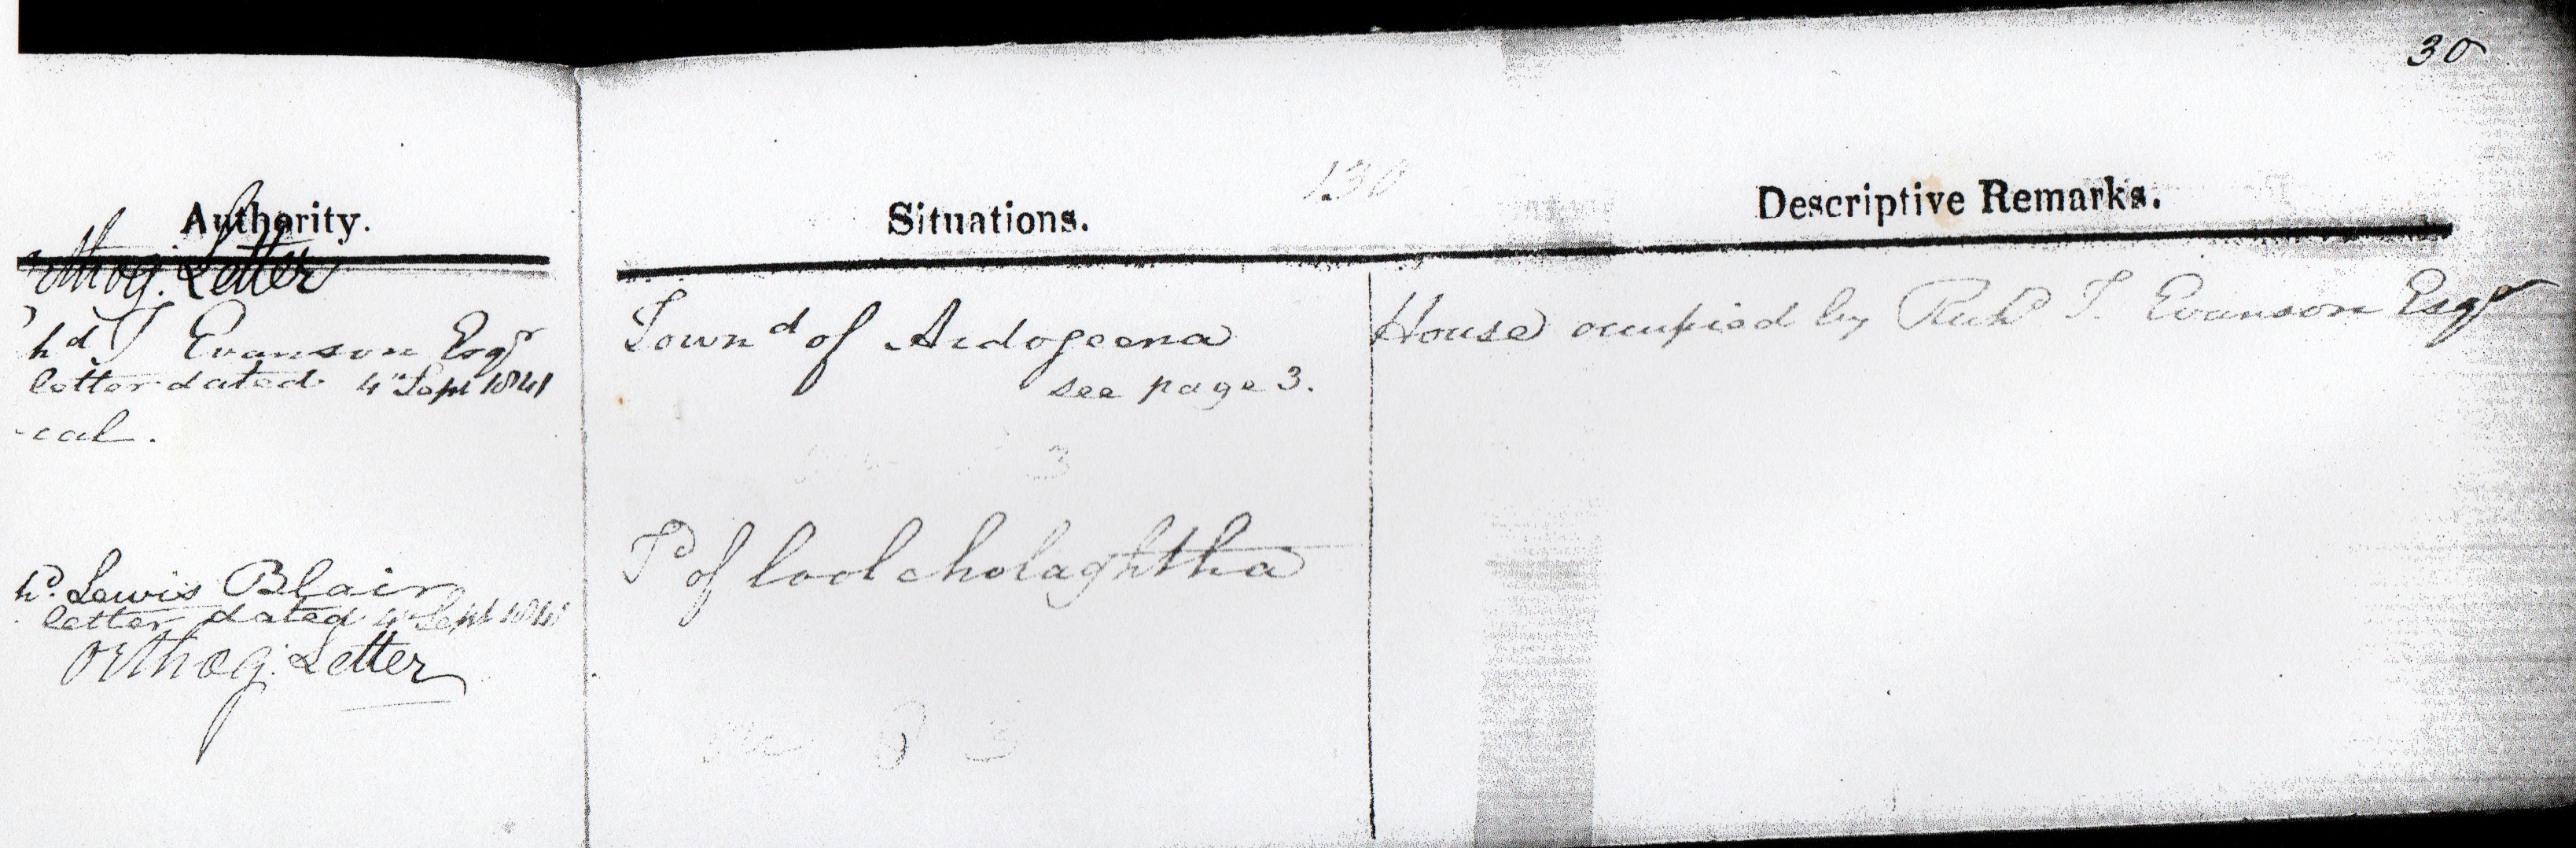 30
130
Authority.
Situations.
Descriptive Remarks.
Orthog. Letter
hd T Evanson Esqr
letter dated 4th Sept 1841
-cal.
Townd of Ardogeena
see page 3.
House occupied by Richd T. Evanson Esqr
3
Td of Coolcholaghtha
hd. Lewis Blair
letter dated 4th Sept 1841
Orthog. Letter
see p 3